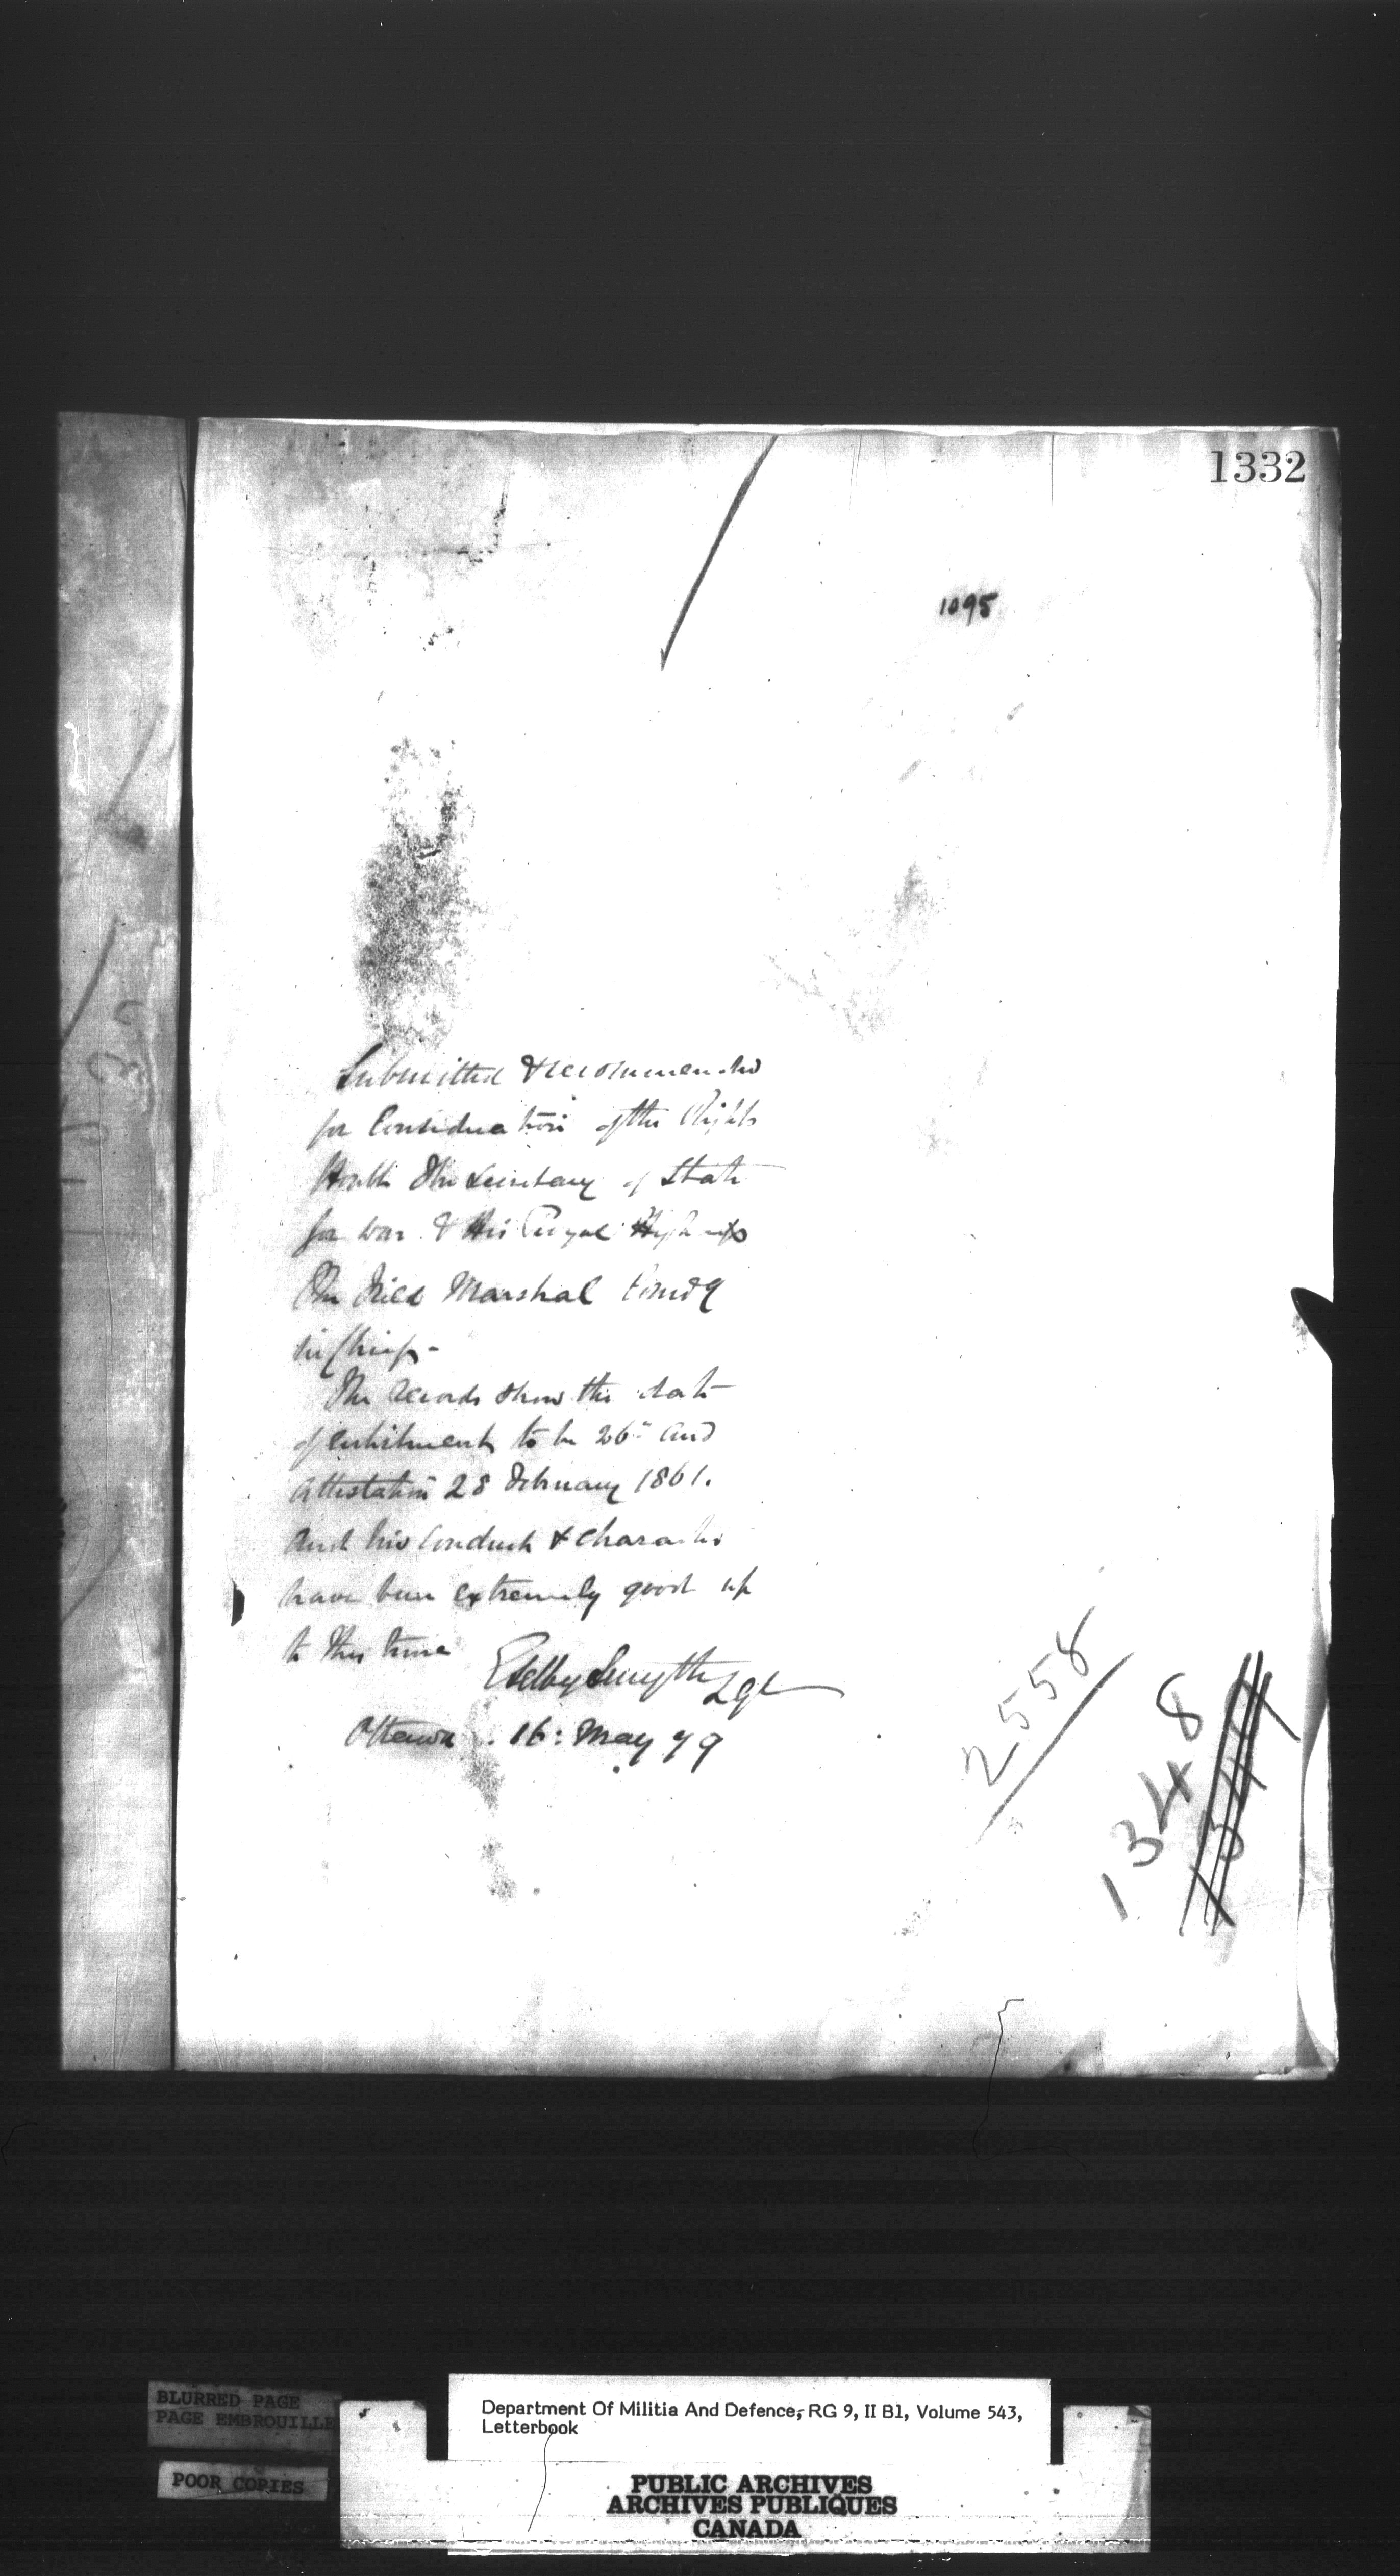 1332
1095
Submitted & recommended
for Consideration of the Right
Honble The Secretary of State
for War & His Royal Highness
The Field Marshal Comdg
in Chief -
The records show the date
of enlistment to be 26th and
Attestation 28 February 1861.
and his Conduct & Character
have been extremely good up
to this time
ESelby Smyth LGl
Ottawa . 16: May 79
2558
1348
BLURRED PAGE
PAGE EMBROUILLE
POOR COPIES
Department Of Militia And Defence, RG 9, II B1, Volume 543,
Letterbook
PUBLIC ARCHIVES
ARCHIVES PUBLIQUES
CANADA